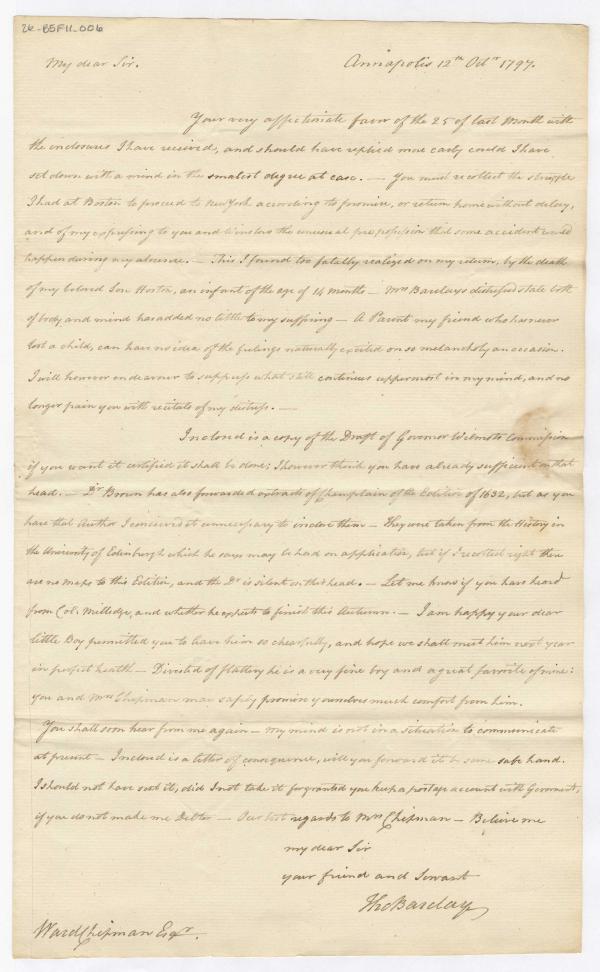 26-B5F11-006
My dear Sir. Annapolis 12th Octr 1797.
Your very affectionate favor of the 25 of last Month with
the enclosures I have received, and should have replied more early could I have
set down with a mind in the smalest degree at ease. — You must recollect the struggle
I had at Boston to proceed to New York according to promise, or return home without delay,
and of my expressing to you and Winslow the unusual prepossession that some accident would
happen during my absence. — This I found too fatally realized on my return, by the death
of my beloved Son Horton, an infant of the age of 14 months — Mrs Barclays distressed state both
of body, and mind has added no little to my suffering — A Parent my friend who has never
lost a child, can have no idea of the feelings naturally excited on so melancholy an occasion.
I will however endeavour to suppress what still continues uppermost in my mind, and no
longer pain you with recitals of my distress. —
Inclosed is a copy of the Draft of Govornor Wilmots Commission
if you want it certified it shall be done; I however think you have already sufficient on that
head. — Dr Brown has also forwarded extracts of Champlain of the Edition of 1632, but as you
have that Author I conceived it unnecessary to enclose them — They were taken from the History in
the University of Edinburgh which he says may be had on application, but if I recollect right there
are no maps to this Edition, and the Dr is silent on that head. — Let me know if you have heard
from Col: Milledge, and whether he expects to finish this Autumn. — I am happy your dear
little Boy permitted you to leave him so chearfully, and hope we shall meet him next year
in perfect health — Divested of flattery he is a very fine boy and a great favorite of mine:
you and Mrs Chipman may safely promise yourselves much comfort from him.
You shall soon hear from me again — my mind is not in a situation to communicate
at present — Inclosed is a letter of consequence, will you forward it by some safe hand.
I should not have sent it, did I not take it for granted you keep a postage account with Goverment,
if you do not make me Debtor — Our best regards to Mrs Chipman — Believe me
my dear Sir
your friend and Servant
Tho Barclay
Ward Chipman Esqr.